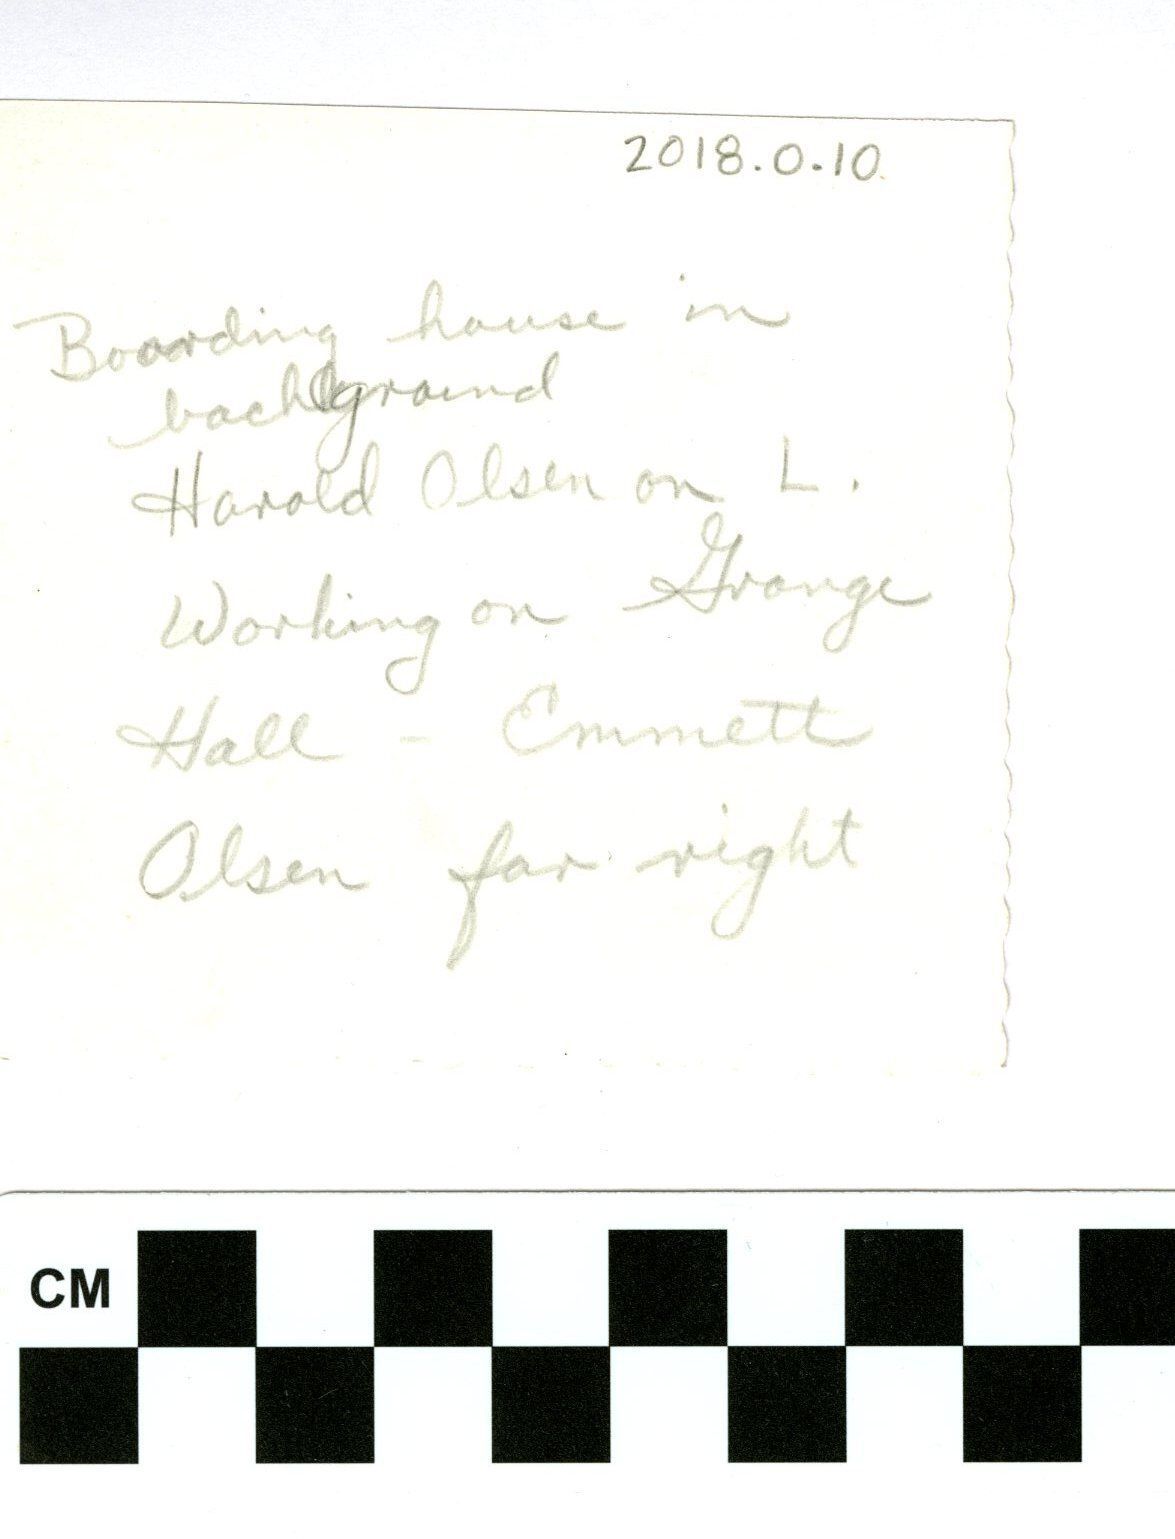 2018.0.10
Boarding house in
background
Harold Olsen on L.
Working on Grange
Hall - Emmett
Olsen far right
CM